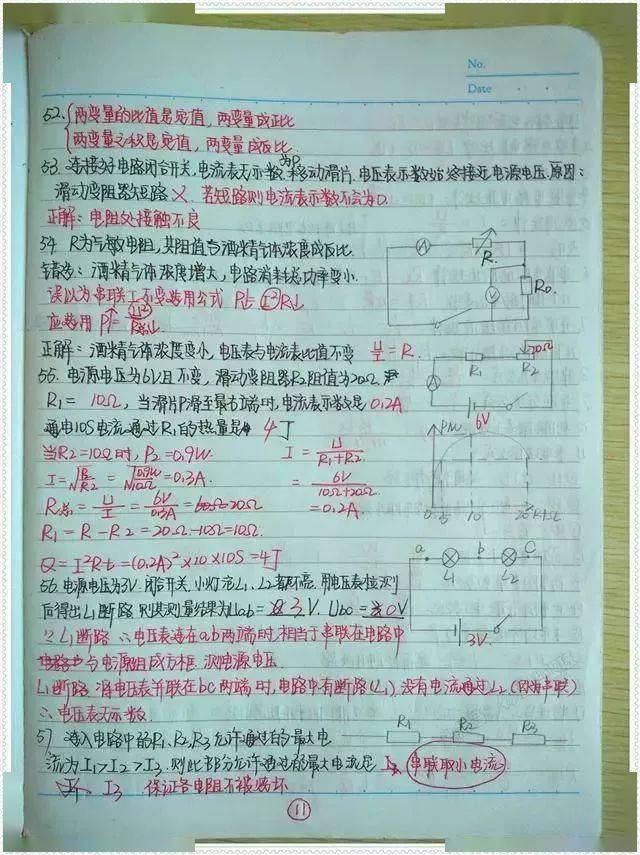 No.
Date
52. 两变量的比值是定值，两变量成正比
两变量之积是定值，两变量成反比.
53. 连接好电路闭合开关，电流表无示数，移动滑片，电压表示数始终接近电源电压，原因：
滑动变阻器短路 × 若短路则电流表示数不会为0.
正解：电阻处接触不良
54. R为气敏电阻，其阻值与酒精气体浓度成反比.
错选：酒精气体浓度增大，电路消耗总功率变小.
误以为串联I不变选用公式 P=I²R↓
应选用 P↑=
正解：酒精气体浓度变小，电压表与电流表比值不变 U/I = R.
A
R
V
R0
55. 电源电压为6V且不变，滑动变阻器R2阻值为20Ω
R1 = 10Ω，当滑片P滑至最右端时，电流表示数是 0.2A
通电10S电流通过R1的热量是 4J
当R2=10Ω时，P2=0.9W.
I = √P/R2 = √0.9W/10Ω = 0.3A.
R总 = U/I = 6V/0.3A = 20Ω
R1 = R-R2 = 20Ω-10Ω=10Ω.
Q = I²Rt = (0.2A)²×10×10S=4J
I = U/R1+R2
= 6V/10Ω+20Ω
= 0.2A.
20Ω
R1 R2
A
6V
P/W
0 5 10 20 R/Ω
56. 电源电压为3V. 闭合开关，小灯泡L1、L2都不亮. 用电压表检测
后得出L1断路，则其测量结果为Uab = 3V. Ubc = 0V
∵L1断路 ∴电压表连在ab两端时，相当于串联在电路中
与电源组成方框. 测电源电压.
L1断路 当电压表并联在bc两端时，电路中有断路(L1)，没有电流通过L2(因为串联)
∴电压表无示数.
a b c
L1 L2
3V
57. 连入电路中的R1、R2、R3允许通过的最大电
流为I1>I2>I3. 则此部分允许通过的最大电流是 I3 (串联取小电流)
I3 保证各电阻不被毁坏
R1 R2 R3
11